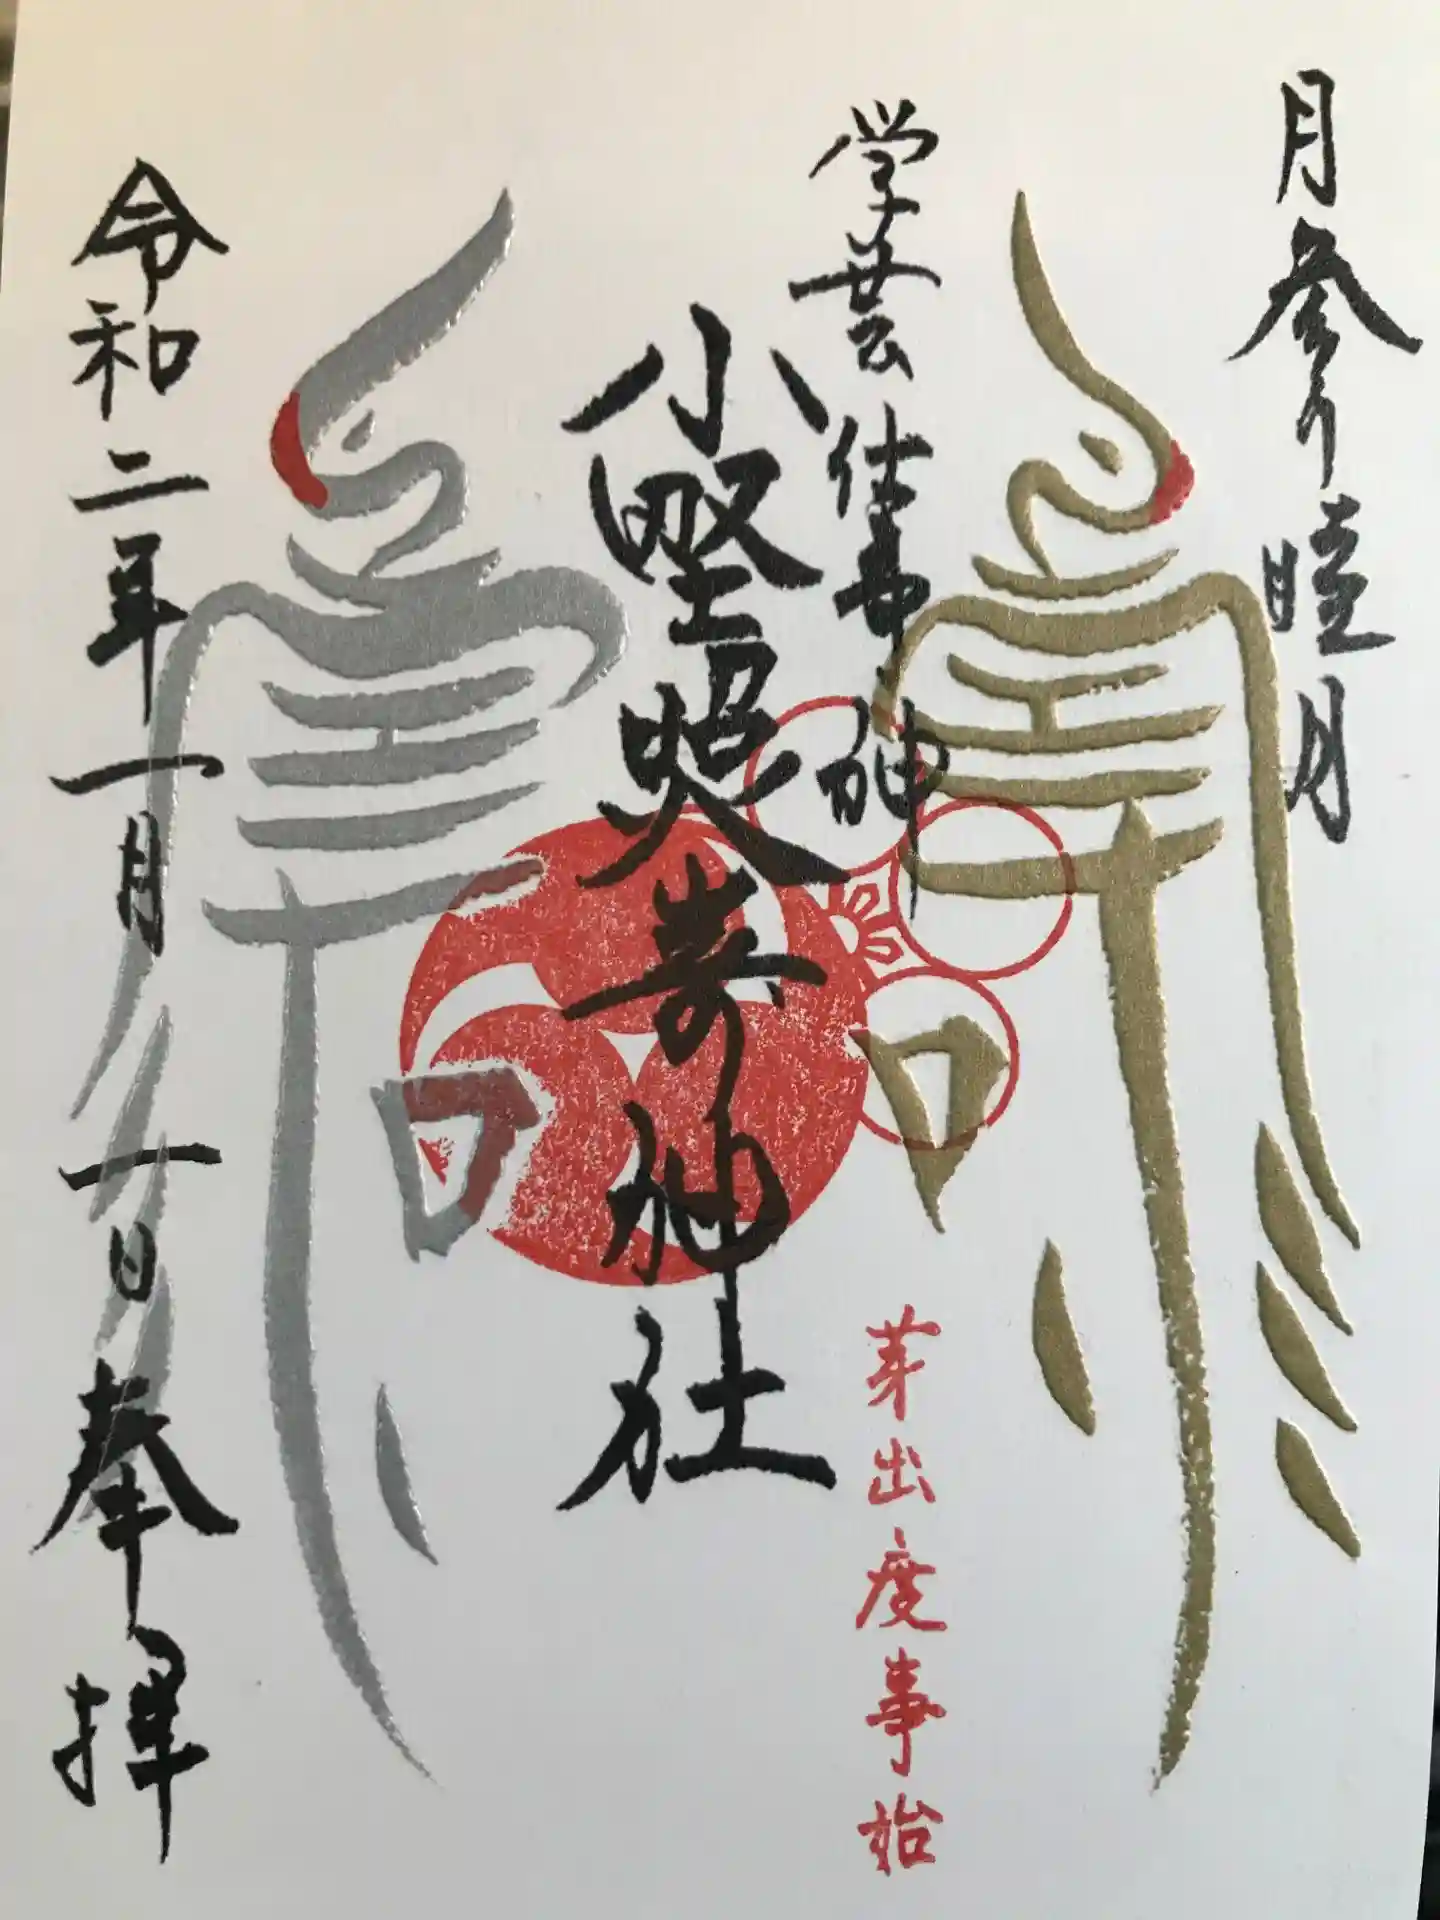 月参り睦月
学芸仕事神
芽出度事始
小野照崎神社
令和二年一月一日奉拝